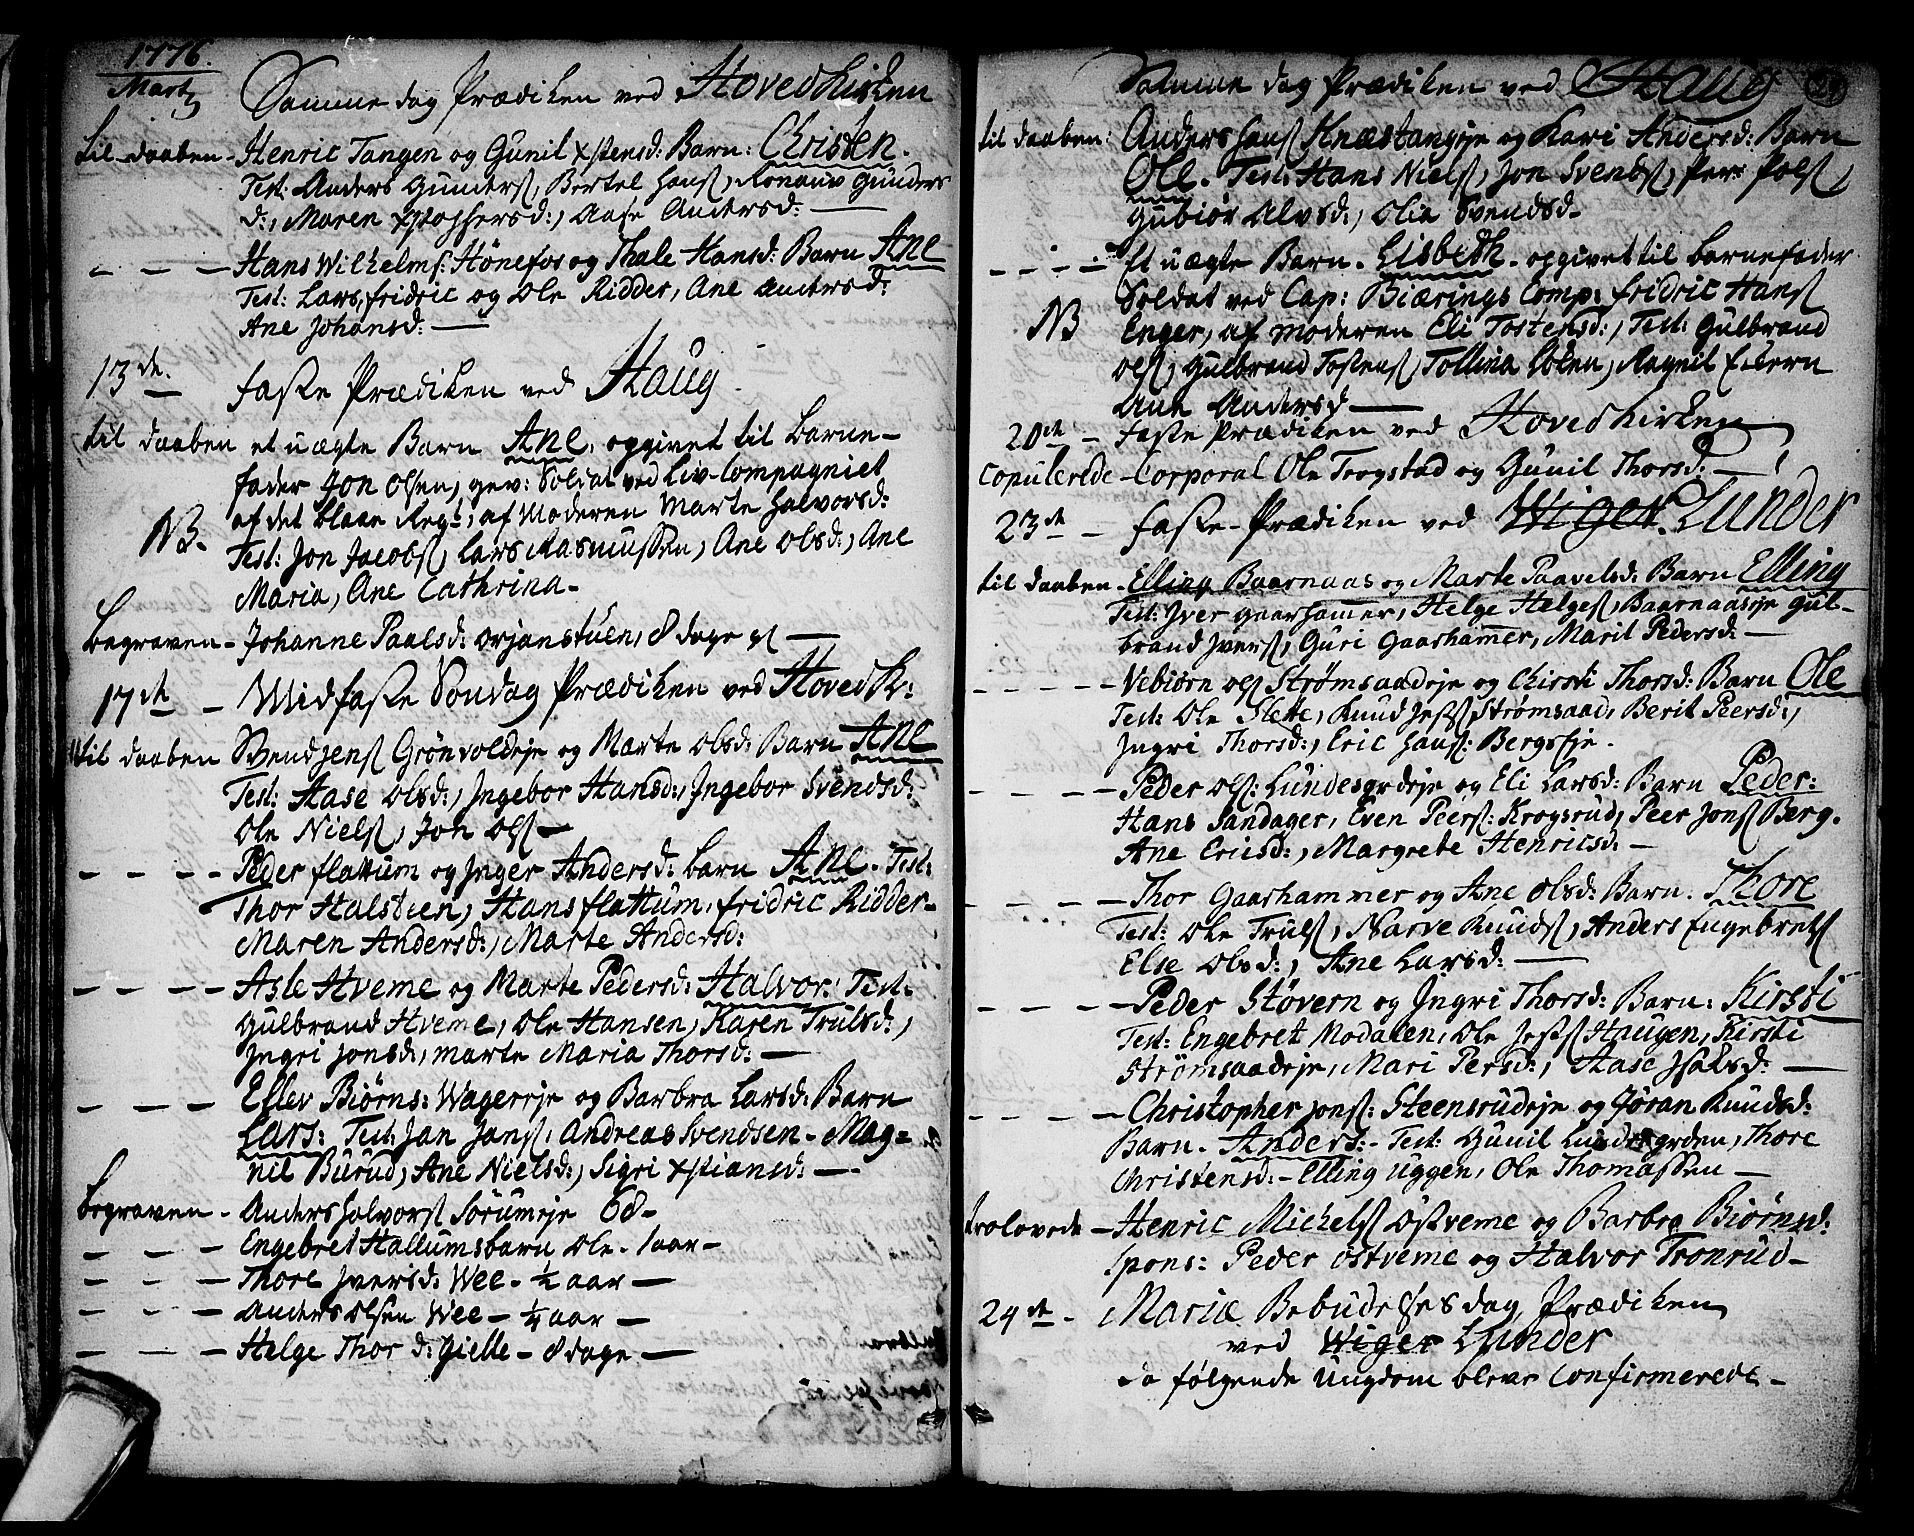 1776.
Martz
Samme dag Prædiken ved Hovedkirken
til daaben - Henric Tangen og Gunil Xstensd: Barn: Christen.
Test: Anders Gunders, Bertel Hans, Ronauv Gunders
d:, Maren Xstophersd:, Aase Andersd: —
— — — Hans Wilhelms: Hönefos og Thale Hansd: Barn Ane
Test: Lars, fridric og Ole Ridder, Ane Andersd:
Ane Johansd: —
13de. faste Prædiken ved Haug.
til daaben et uægte Barn Ane, opgivet til barne-
fader Jon Olsen, gev: Soldat ved Liv-Compagniet
NB. af det blaae Regt:, af Moderen Marte Halvorsd:
Test: Jon Jacobs, Lars Rasmussen, Ane Olsd:, Ane
Maria, Ane Cathrina-
begraven - Johanne Paalsd: Ørjanstuen, 8 dage gl —
17de - Midfaste Søndag Prædiken ved Hoved K:
til daaben Svend Jens Grönvoldeje og Marte Olsd: Barn Ane
Test: Aase Olsd:, Ingebor Hansd:, Ingebor Svendsd:
Ole Niels, Jon Ols —
— — — Peder flattum og Inger Andersd: barn Ane. Test:
Thor Halstien, Hans flattum, fridric Ridder-
Maren Andersd:, Marte Andersd:
— — — — Asle Hveme og Marte Pedersd: Halvor: Test:
Gulbrand Hveme, Ole Hansen, Karen Trulsd:,
Ingri Jonsd:, Marte Maria Thorsd: —
— — — Ellev Biørns: Wagereje og Barbra Larsd: Barn
Lars: Test: Jan Jans, Andreas Svendsen - Mag-
nil Burud, Ane Nielsd:, Sigri Xstiansd: —
begraven - Anders Halvors Sörumeje 68-
— — — Engebret Hallums barn Ole - 1 aar -
— — — Thore Iversd: Wee - ½ aar —
— — — Anders Olsen Wee - ¼ aar —
— — — Helge Thorsd: Gielle - 8 dage —
Samme dag Prædiken ved Haug
til daaben: Anders Hans Knæstangeje og Kari Andersd: Barn
Ole. Test: Hans Niels, Jon Svends, Per Pols,
Gubiör Alvsd:, Olia Svendsd-
— — — Et uægte Barn. Lisbeth - opgivet til barnefader
Soldat ved Cap: Biærings Comp: fridric Hans
NB Enger, af moderen Eli Tostensd:, Test: Gulbrand
Ols, Gulbrand Tostens, Tollina Loben, Ragnil
Ane Andersd —
20de - faste Prædiken ved Hovedkirken
Copulerede - Corporal Ole Trogstad og Gunil Thorsd. —
23de - faste-Prædiken ved Wiger Lunder
til daaben - Elling Baarnaas og Marte Paavelsd: Barn Elling
Test: Iver Gaarhamer, Helge Helges, Baarnaaseje Gul-
brand Ivers, Guri Gaarhammer, Marit Pedersd: —
— — — — Vebiørn Ols Strømsaadeje og Chirsti Thorsd: Barn Ole
Test: Ole Slette, Knud Jess Strømsaad, Berit Peersd:,
Ingri Thorsd:, Eric Hans: Bergseje.
— — — — Peder Ols: Lundesgrdeje og Eli Larsd: Barn Peder:
Hans Sandager, Even Peers: Krogsrud, Peer Jons Berg.
Ane Ericsd:, Margrete Henricsd: —
— — — — Thor Gaarhammer og Ane Olsd: Barn. Thore
Test: Ole Truls, Narve Knuds, Anders Engebrets
Else Olsd:, Ane Larsd: —
— — — — Peder Stövern og Ingri Thorsd: Barn: Kirsti
Test: Engebret Modalen, Ole Jess Haugen, Kirsti
Strømsaadeje, Mari Persd:, Aase Isaksd: —
— — — — Christopher Jons: Steensrudeje og Jöran Knudsd:
Barn. Anders: - Test: Gunil Lundesgrden, Thore
Christensd: - Elling Uggen, Ole Thomassen —
trolovede - Henric Michels Østveme og Barbra Biørnsd:
Spons: Peder Østveme og Halvor Tronrud-
24de - Mariæ Bebudelses dag Prædiken
ved Wiger Lunder
da følgende Ungdom bleve Confirmerede -